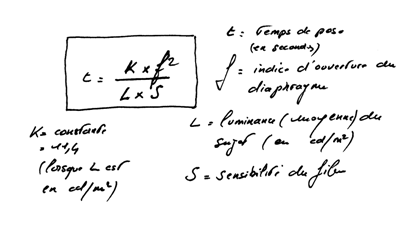 t = K x f² / L x S
t : Temps de pose
(en secondes)
f = indice d'ouverture du
diaphragme
L = luminance (moyenne) du
sujet (en cd/m²)
S = sensibilité du film
K = constante
= 11,4
(lorsque L est
en cd/m²)